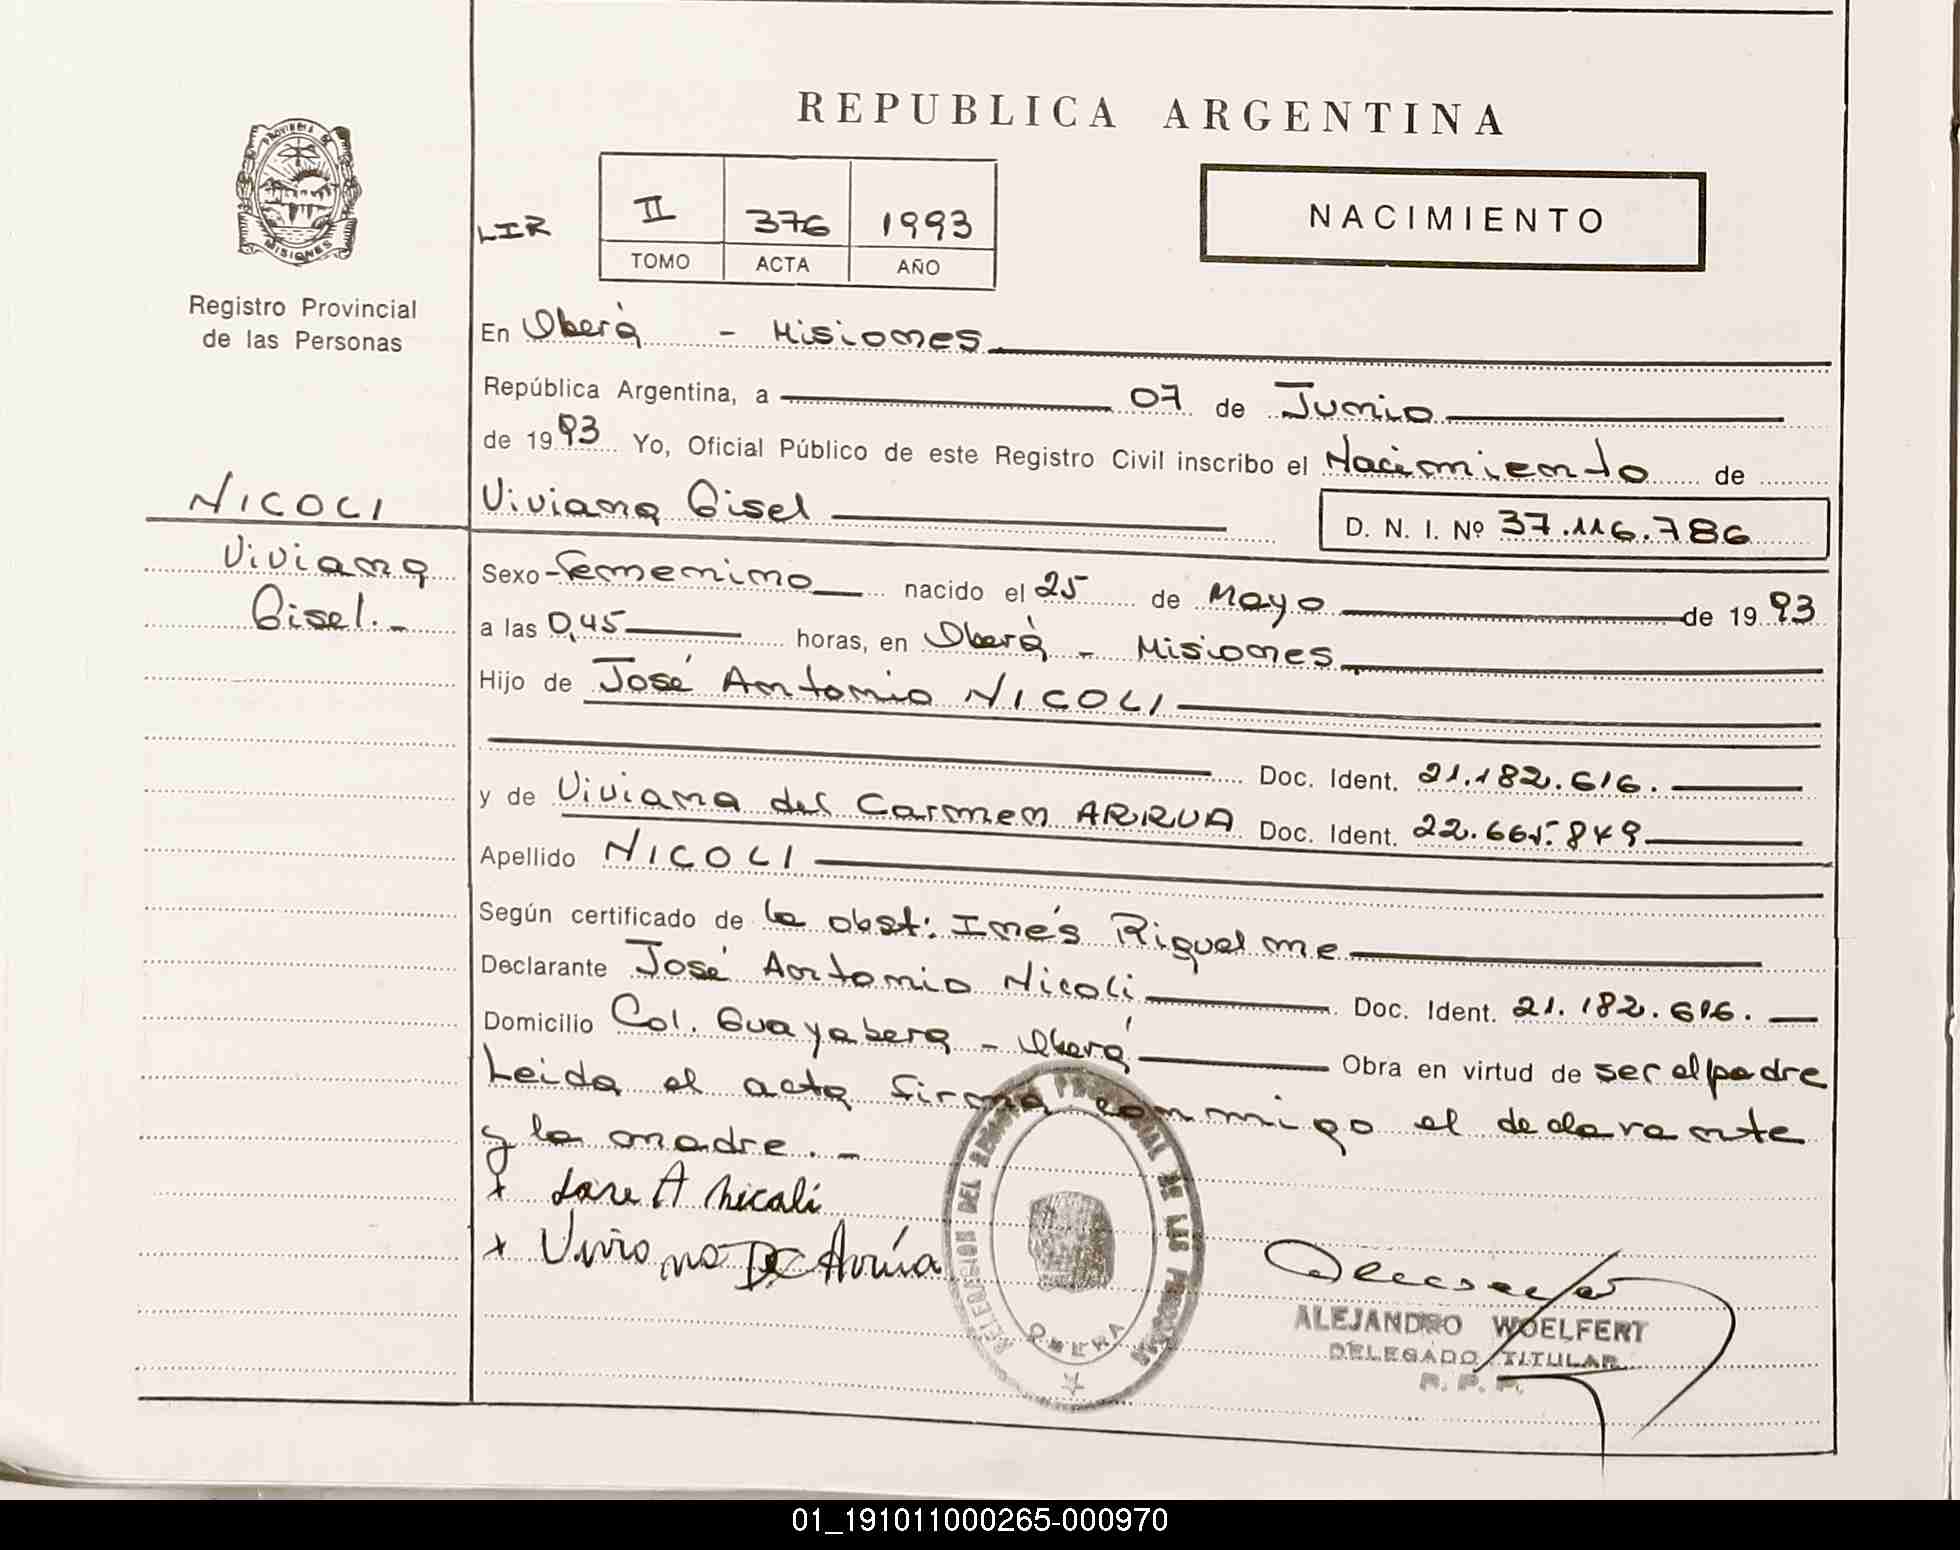 REPUBLICA ARGENTINA
PROVINCIA DE
MISIONES
Registro Provincial
de las Personas
LIR
II 376 1993
TOMO ACTA AÑO
NACIMIENTO
En Oberá - Misiones
República Argentina, a 07 de Junio
de 1993 Yo, Oficial Público de este Registro Civil inscribo el Nacimiento de
NICOLI
Viviana Gisel
D. N. I. Nº 37.116.786
Viviana
Gisel.-
Sexo Femenino nacido el 25 de Mayo de 1993
a las 0,45 horas, en Oberá - Misiones
Hijo de José Antonio NICOLI
Doc. Ident. 21.182.616.
y de Viviana del Carmen ARRUA Doc. Ident. 22.665.849
Apellido NICOLI
Según certificado de la obst: Inés Riquelme
Declarante José Antonio Nicoli Doc. Ident. 21.182.616.
Domicilio Col. Guayabera - Oberá Obra en virtud de ser el padre
Leida el acta firma conmigo el declarante
y la madre.-
x Jose A Nicoli
x Viviana DC Arrúa
DELEGACION DEL REGISTRO PROVINCIAL DE LAS PERSONAS
OBERA
ALEJANDRO WOELFERT
DELEGADO TITULAR
R. P. P.
01_191011000265-000970